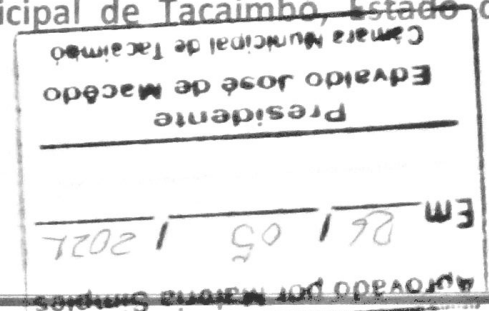 icipal de Tacaimbó, Estado
Aprovado por Maioria Simples
Em 26 / 05 / 2021
Presidente
Edvaldo José de Macêdo
Câmara Municipal de Tacaimbó